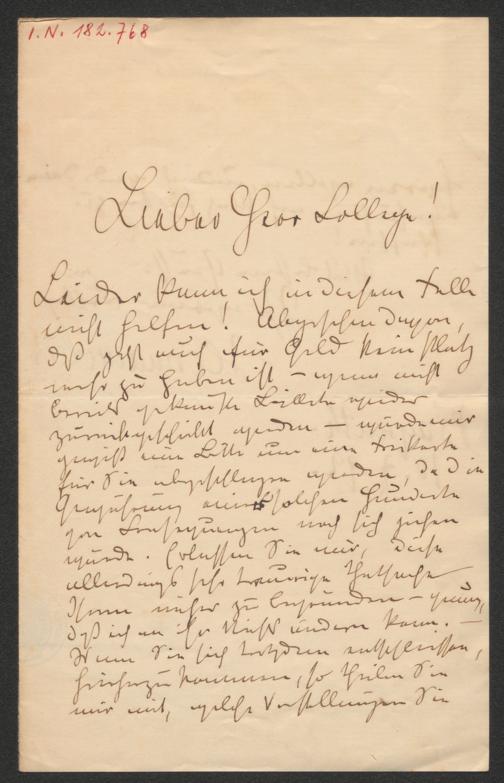 I. N. 182.768
Lieber Herr College!
Leider kann ich in diesem Falle
nicht helfen! Abgesehen davon,
daß jetzt auch für Geld kein Platz
mehr zu haben ist – wenn nicht
bereits gekaufte Billete wieder
zurückgeschickt werden – würde mir
gewiß eine Bitte um eine Freikarte
für Sie abgeschlagen werden, da die
Gewährung einer solchen Hunderte
von Consequenzen nach sich ziehen
würde. Erlassen Sie mir, diese
allerdings sehr traurige Thatsache
Ihnen näher zu begründen – genug,
daß ich an ihr nichts ändern kann. –
Wenn Sie sich trotzdem entschließen,
hieherzukommen, so theilen Sie
mir mit, welche Vorstellungen Sie